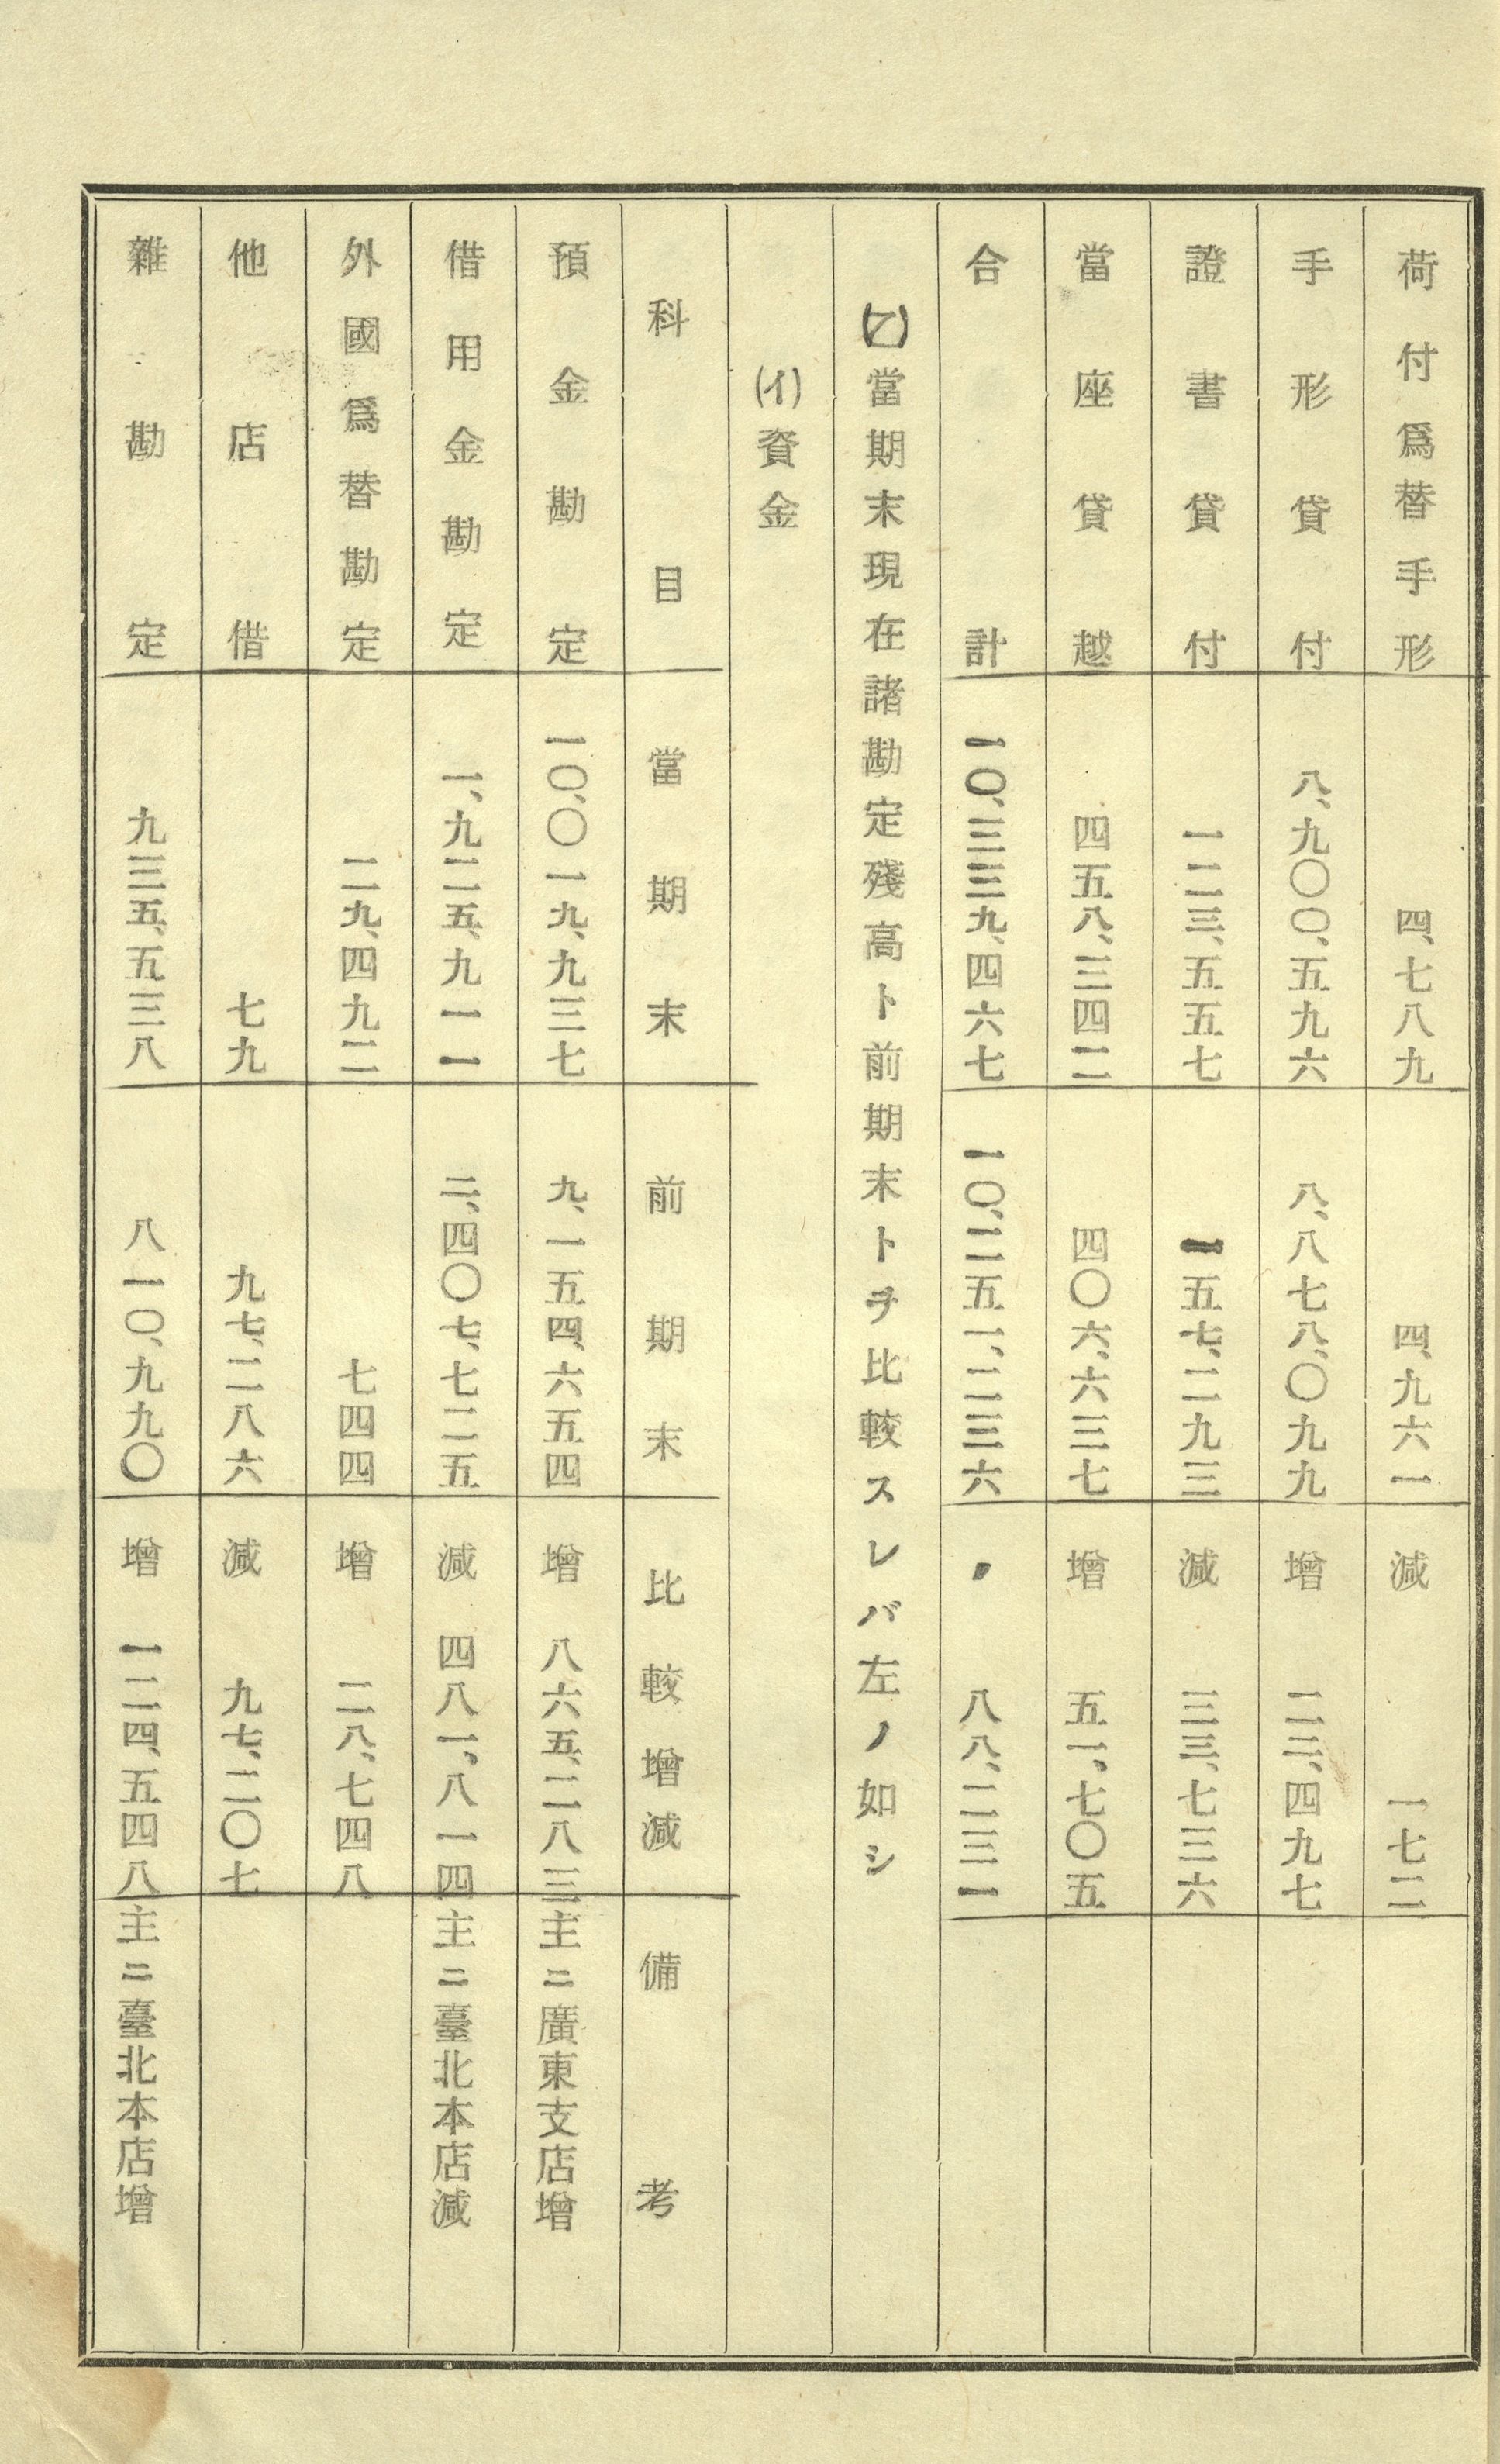 荷付爲替手形 四、七八九 四、九六一 減 一七二
手形貸付 八、九〇〇、五九六 八、八七八、〇九九 增 二二、四九七
證書貸付 一二三、五五七 一五七、二九三 減 三三、七三六
當座貸越 四五八、三四二 四〇六、六三七 增 五一、七〇五
合計 一〇、三三九、四六七 一〇、二五一、二三六 〃 八八、二三一
(乙)當期末現在諸勘定殘高ト前期末トヲ比較スレバ左ノ如シ
(イ)資金
科目 當期末 前期末 比較增減 備考
預金勘定 一〇、〇一九、九三七 九、一五四、六五四 增 八六五、二八三 主ニ廣東支店增
借用金勘定 一、九二五、九一一 二、四〇七、七二五 減 四八一、八一四 主ニ臺北本店減
外國爲替勘定 二九、四九二 七四四 增 二八、七四八
他店借 七九 九七、二八六 減 九七、二〇七
雜勘定 九三五、五三八 八一〇、九九〇 增 一二四、五四八 主ニ臺北本店增